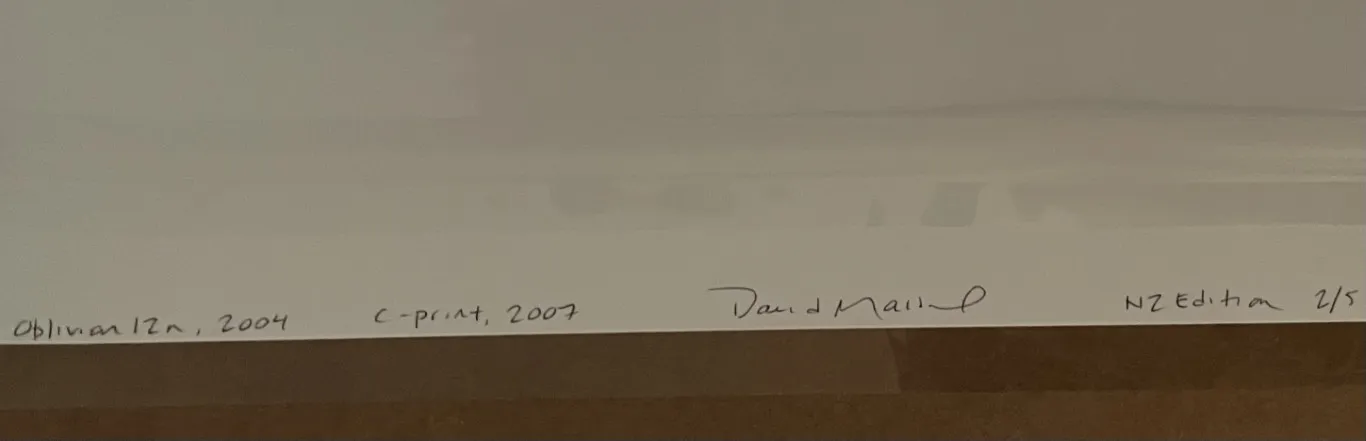 Oblivion 12n, 2004 C-print, 2007 David Maisel NZ Edition 2/5